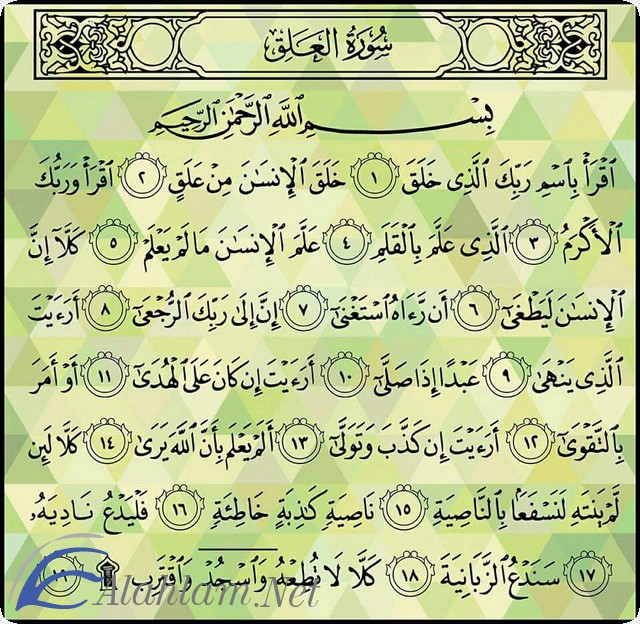 سُورَةُ العَلَقِ
بِسْمِ ٱللَّهِ ٱلرَّحْمَٰنِ ٱلرَّحِيمِ
ٱقْرَأْ بِٱسْمِ رَبِّكَ ٱلَّذِى خَلَقَ ١ خَلَقَ ٱلْإِنسَٰنَ مِنْ عَلَقٍ ٢ ٱقْرَأْ وَرَبُّكَ
ٱلْأَكْرَمُ ٣ ٱلَّذِى عَلَّمَ بِٱلْقَلَمِ ٤ عَلَّمَ ٱلْإِنسَٰنَ مَا لَمْ يَعْلَمْ ٥ كَلَّآ إِنَّ
ٱلْإِنسَٰنَ لَيَطْغَىٰٓ ٦ أَن رَّءَاهُ ٱسْتَغْنَىٰٓ ٧ إِنَّ إِلَىٰ رَبِّكَ ٱلرُّجْعَىٰٓ ٨ أَرَءَيْتَ
ٱلَّذِى يَنْهَىٰ ٩ عَبْدًا إِذَا صَلَّىٰٓ ١٠ أَرَءَيْتَ إِن كَانَ عَلَى ٱلْهُدَىٰٓ ١١ أَوْ أَمَرَ
بِٱلتَّقْوَىٰٓ ١٢ أَرَءَيْتَ إِن كَذَّبَ وَتَوَلَّىٰٓ ١٣ أَلَمْ يَعْلَم بِأَنَّ ٱللَّهَ يَرَىٰ ١٤ كَلَّا لَئِن
لَّمْ يَنتَهِ لَنَسْفَعًۢا بِٱلنَّاصِيَةِ ١٥ نَاصِيَةٍ كَٰذِبَةٍ خَاطِئَةٍ ١٦ فَلْيَدْعُ نَادِيَهُۥ
١٧ سَنَدْعُ ٱلزَّبَانِيَةَ ١٨ كَلَّا لَا تُطِعْهُ وَٱسْجُدْ وَٱقْتَرِب ۩ ١٩
Alahlam.Net